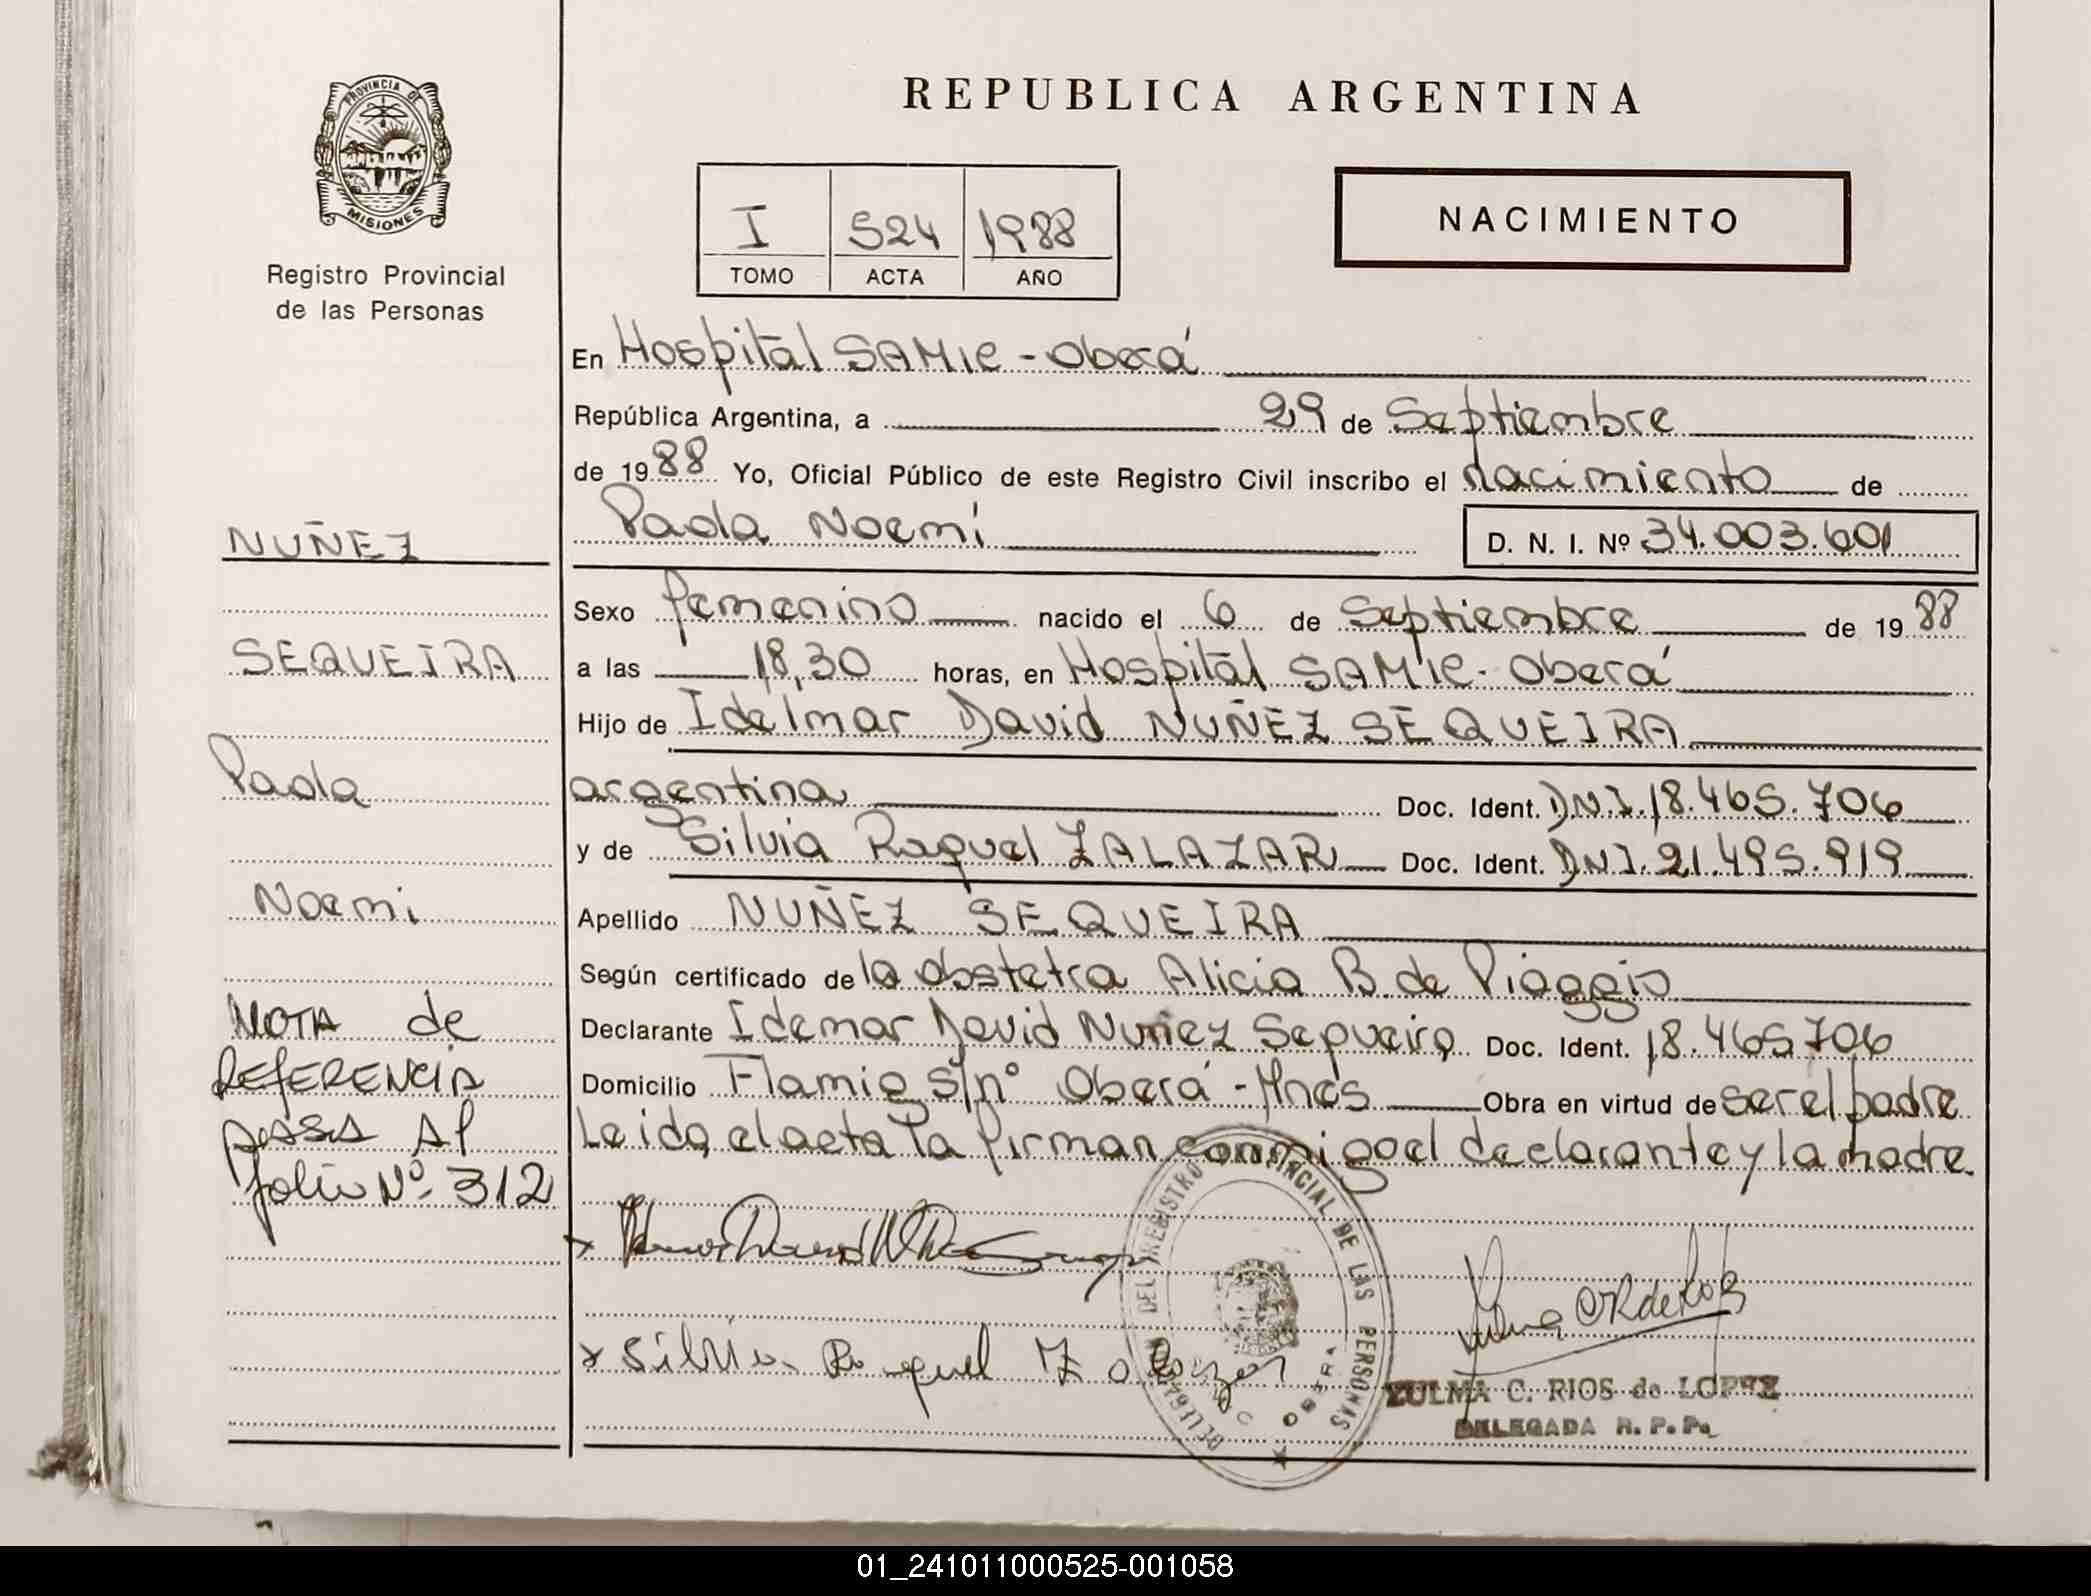 REPUBLICA ARGENTINA
PROVINCIA DE
MISIONES
Registro Provincial
de las Personas
I 524 1988
TOMO ACTA AÑO
NACIMIENTO
En Hospital SAMIC - Oberá
República Argentina, a 29 de Septiembre
de 1988 Yo, Oficial Público de este Registro Civil inscribo el nacimiento de
Paola Noemi D. N. I. Nº 34.003.601
Sexo femenino nacido el 6 de Septiembre de 1988
a las 18,30 horas, en Hospital SAMIC - Oberá
Hijo de Idelmar David NUÑEZ SEQUEIRA
argentina Doc. Ident. D.N.I. 18.465.706
y de Silvia Raquel ZALAZAR Doc. Ident. D.N.I. 21.495.919
Apellido NUÑEZ SEQUEIRA
Según certificado de la obstetra Alicia B. de Piaggio
Declarante Idemar David Nuñez Sequeira Doc. Ident. 18.465706
Domicilio Flamig s/nº Oberá - Mnes Obra en virtud de ser el padre
Leida el acta la firman conmigo el declarante y la madre.
NUÑEZ
SEQUEIRA
Paola
Noemi
NOTA de
REFERENCIA
PASSA Al
folio Nº 312
Silvia Raquel Zalazar
DEL REGISTRO PROVINCIAL DE LAS PERSONAS
OBERA
ZULMA C. RIOS de LOPEZ
DELEGADA R. P. P.
01_241011000525-001058